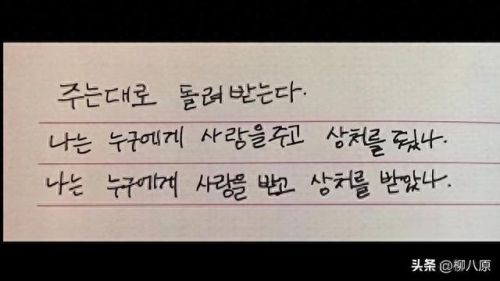 주는대로 돌려받는다.
나는 누구에게 사랑을 주고 상처를 줬나.
나는 누구에게 사랑을 받고 상처를 받았나.
头条 @柳八原